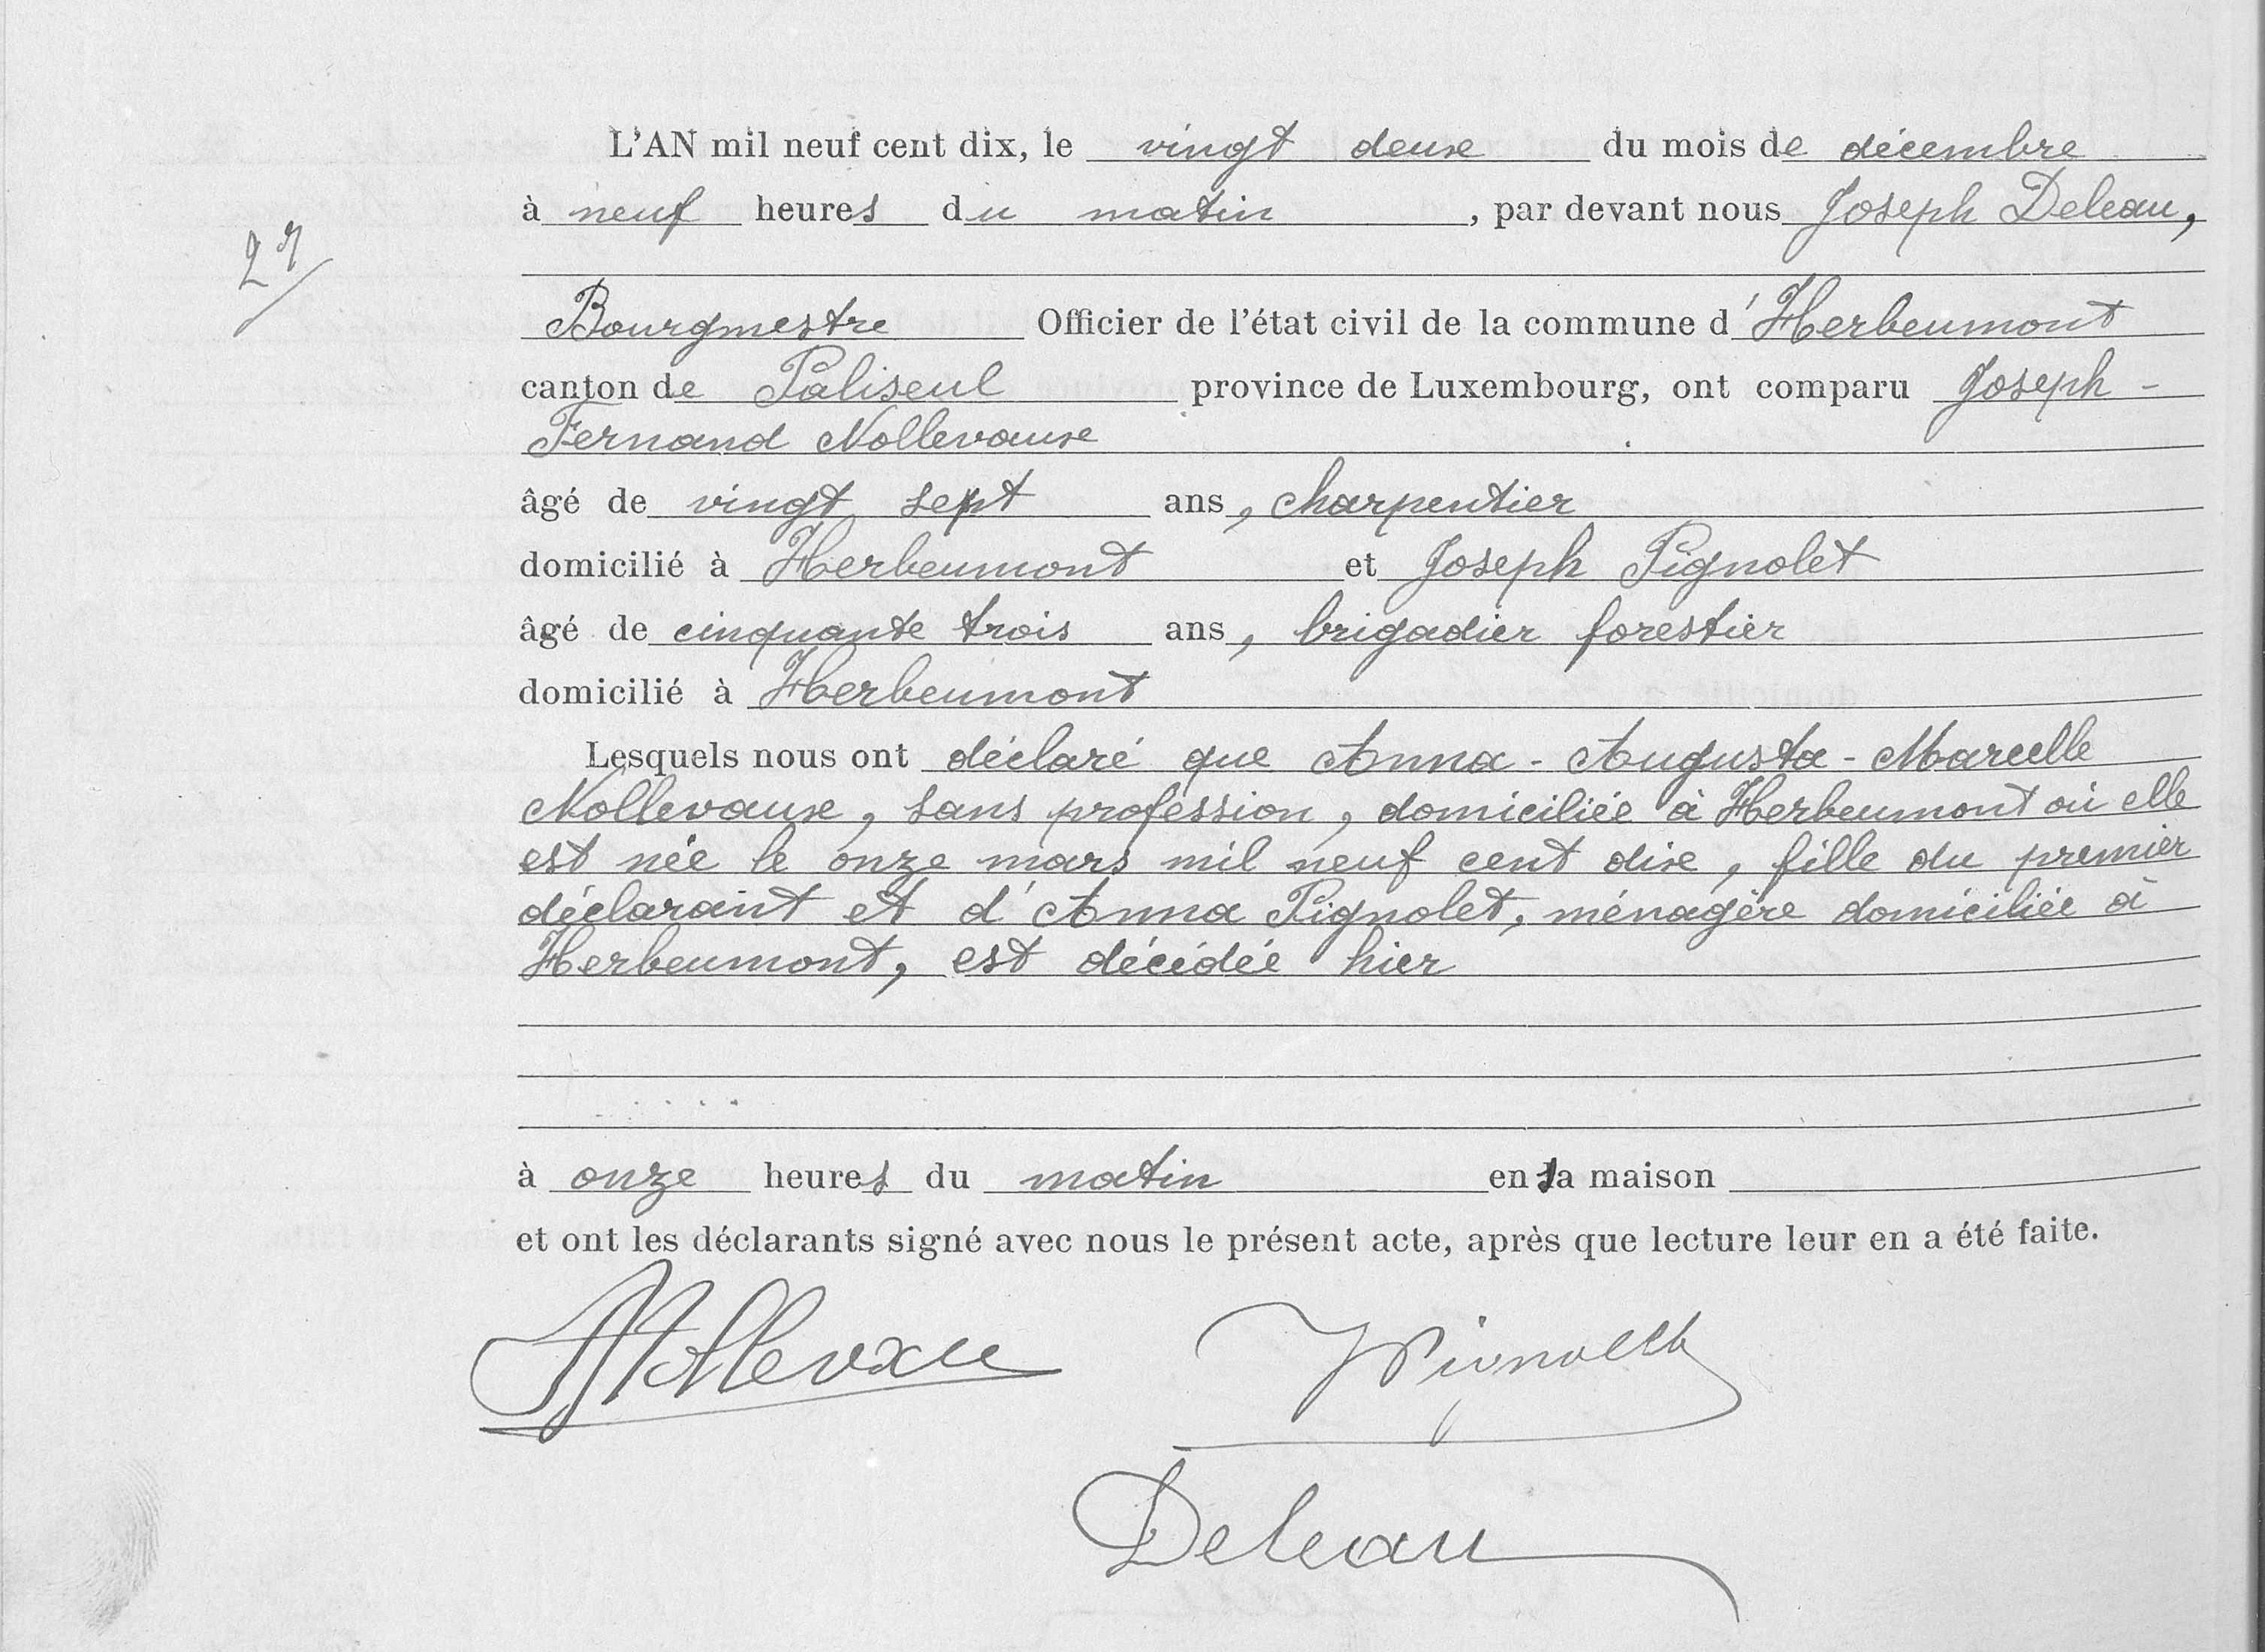 L'AN mil neuf cent dix, le vingt deux du mois de décembre
à neuf heures du matin, par devant nous Joseph Deleau,
27
Bourgmestre Officier de l'état civil de la commune d'Herbeumont
canton de Paliseul province de Luxembourg, ont comparu Joseph-
Fernand Nollevaux
âgé de vingt sept ans, charpentier
domicilié à Herbeumont et Joseph Pignolet
âgé de cinquante trois ans, brigadier forestier
domicilié à Herbeumont
Lesquels nous ont déclaré que Anna-Augusta-Marcelle
Nollevaux, sans profession, domiciliée à Herbeumont où elle
est née le onze mars mil neuf cent dix, fille du premier
déclarant et d'Anna Pignolet, ménagère domiciliée à
Herbeumont, est décédée hier
à onze heures du matin en sa maison
et ont les déclarants signé avec nous le présent acte, après que lecture leur en a été faite.
Deleau